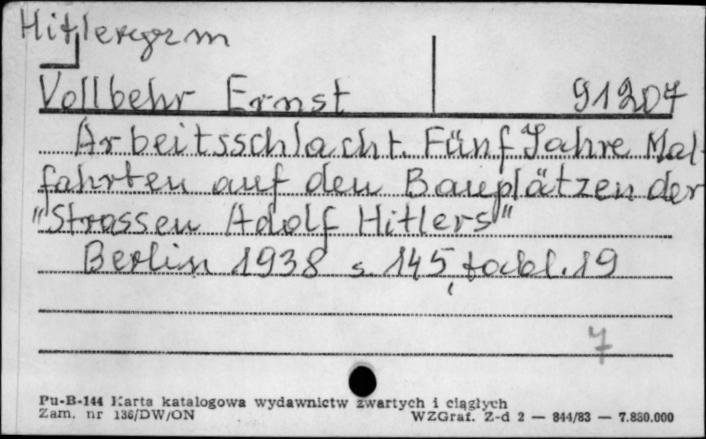 Hitleryzm
Vollbehr Ernst 91207
Arbeitsschlacht. Fünf Jahre Mal-
fahrten auf den Bauplätzen der
"Strassen Adolf Hitlers"
Berlin 1938 s. 145, tabl. 19
7
Pu-B-144 Karta katalogowa wydawnictw zwartych i ciągłych
Zam. nr 136/DW/ON WZGraf. Z-d 2 — 844/83 — 7.880.000